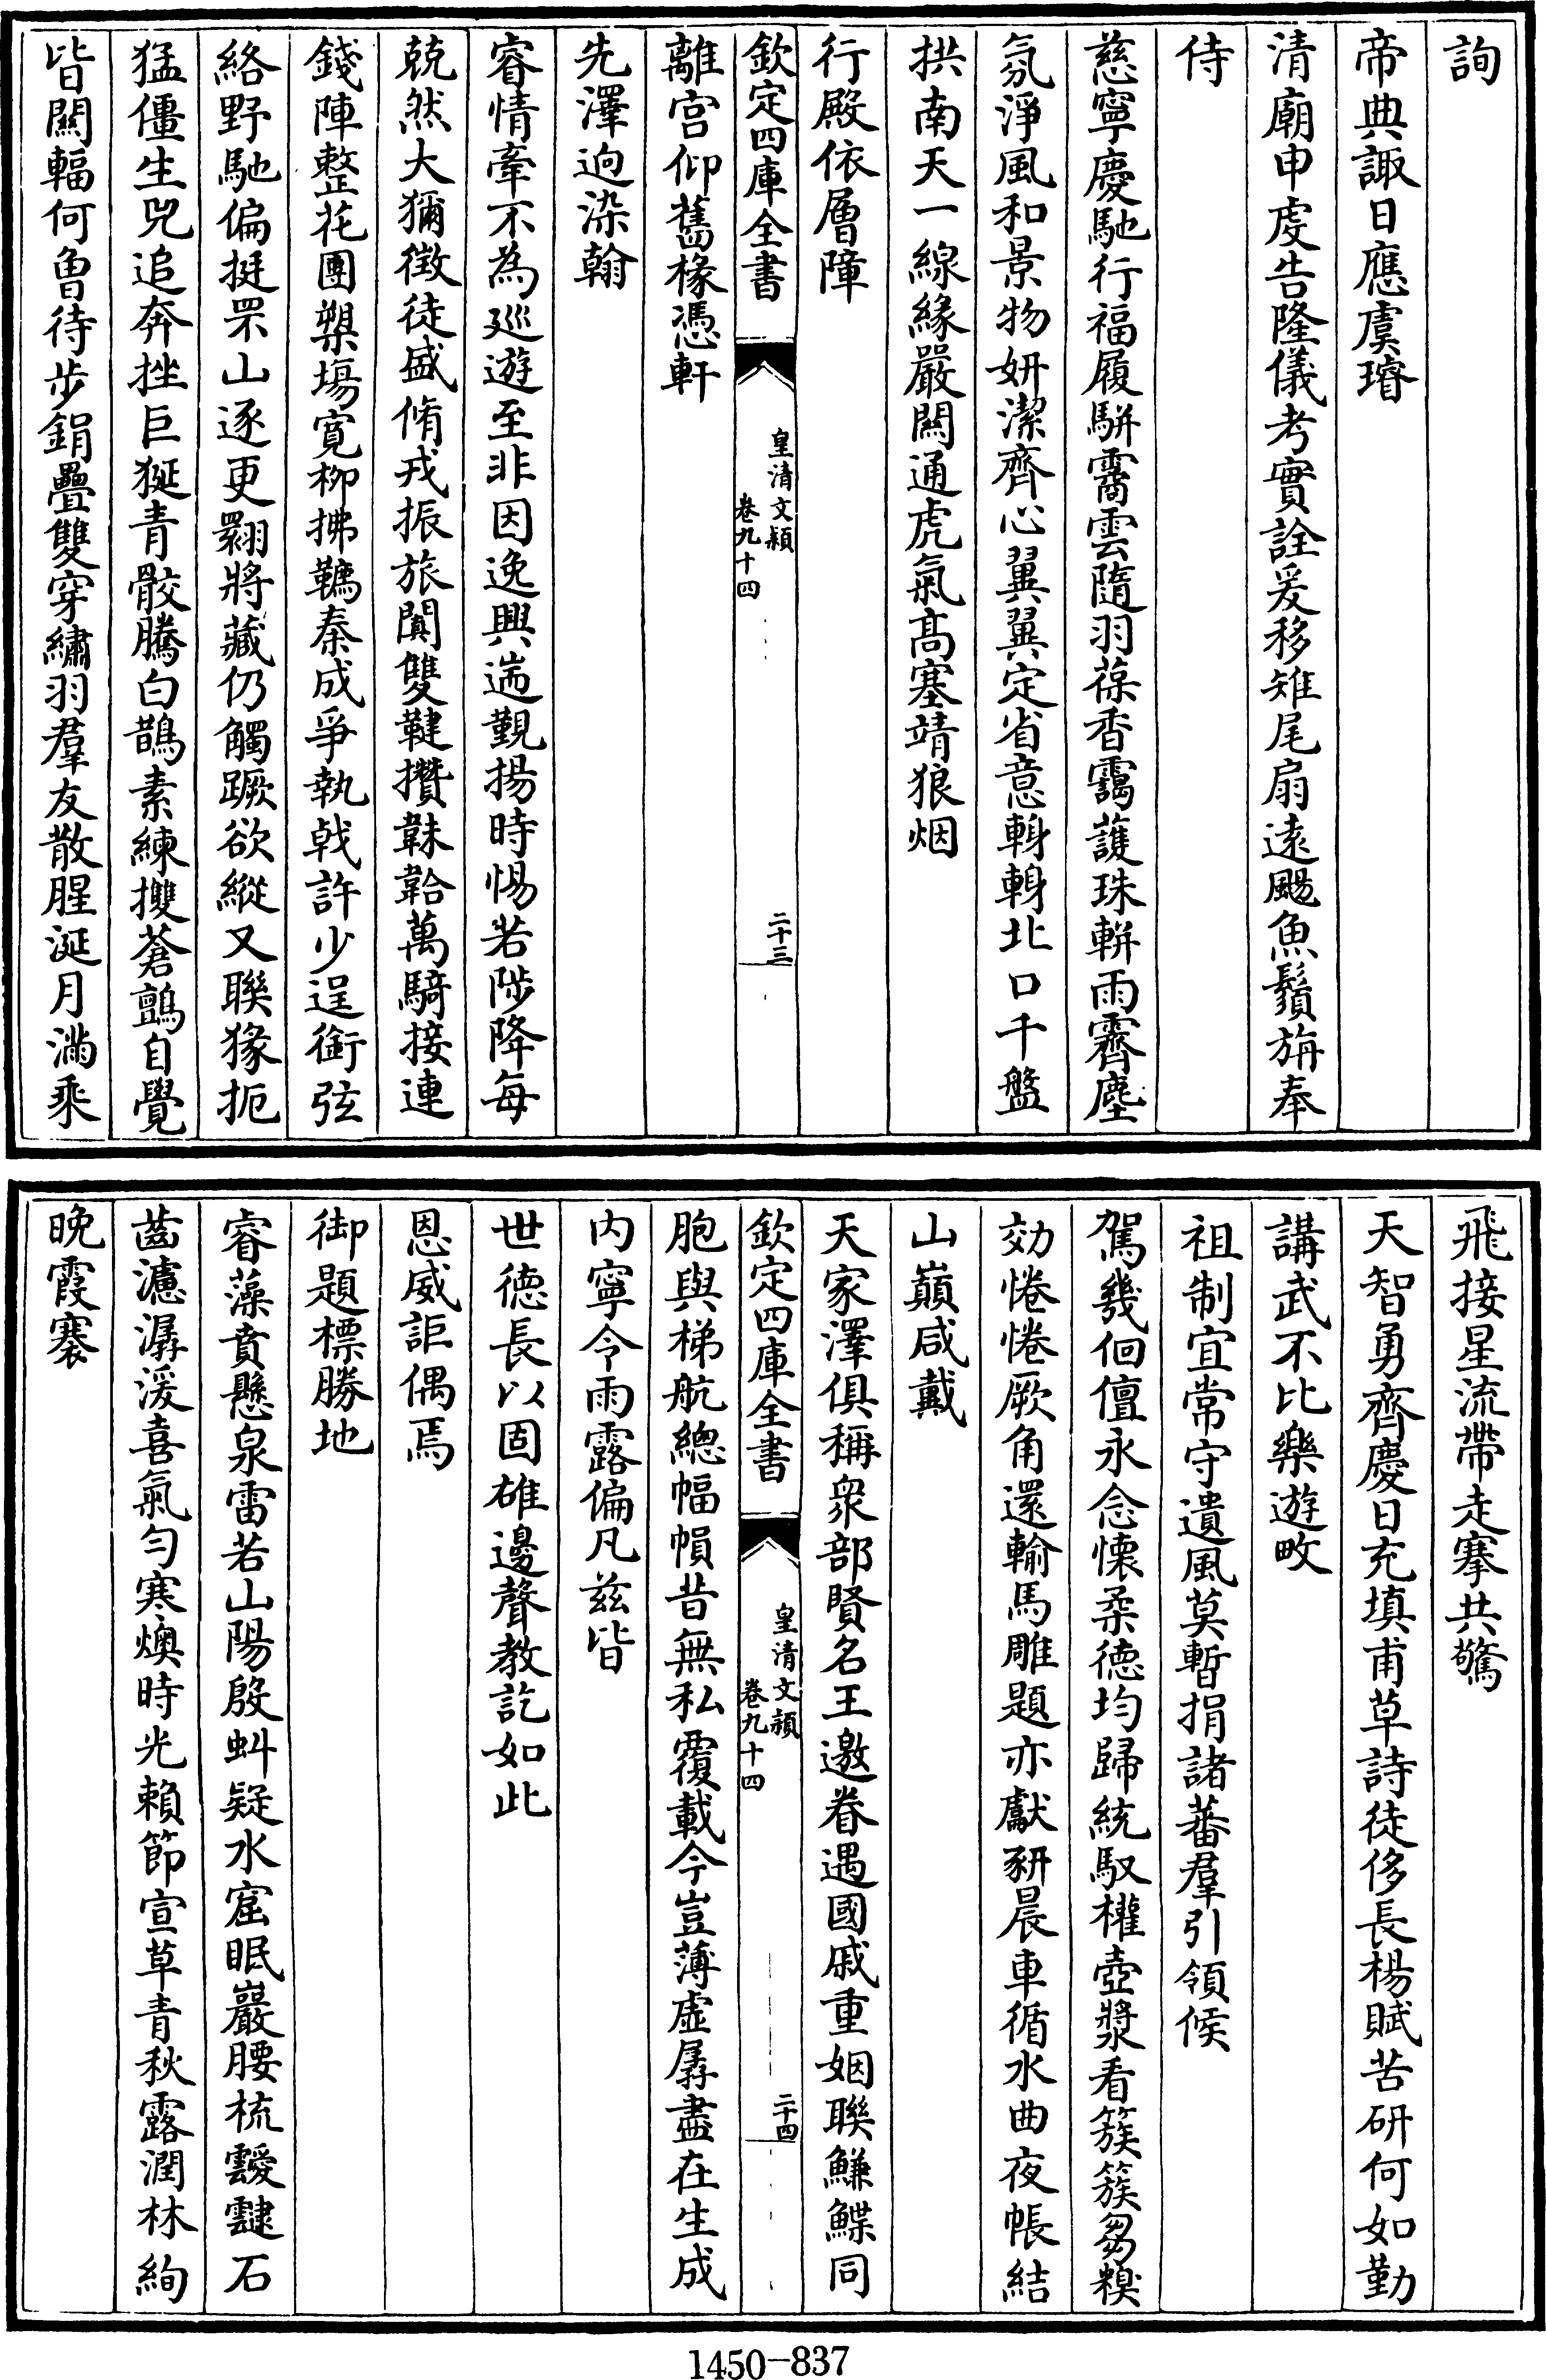 詢
帝典諏日應虞璿
清廟申虔告隆儀考實詮爰移雉尾扇遠颺魚鬚旃奉
侍
慈寧慶馳行福履駢霱雲隨羽葆香靄護珠軿雨霽塵
氛淨風和景物妍潔齊心翼翼定省意轉轉北口千盤
拱南天一線緣嚴關通虎氣高塞靖狼烟
行殿依層障
欽定四庫全書
皇清文穎
卷九十四
二十三
離宫仰舊椽憑軒
先澤逈染翰
睿情牽不為巡遊至非因逸興遄覲揚時惕若陟降每
兢然大獮徴徒盛脩戎振旅闐雙鞬攢韎韐萬騎接連
錢陣整花團槊塲寛柳拂韉秦成爭執戟許少逞銜弦
絡野馳偏挺罘山逐更翾將藏仍觸蹶欲縱又聯猭扼
猛僵生兕追奔挫巨狿青骹騰白鵲素練擭蒼鸇自覺
皆關輻何曽待步鋗疊雙穿繡羽羣友散腥涎月滿乘
飛接星流帶走搴共驚
天智勇齊慶日充填甫草詩徒侈長楊賦苦研何如勤
講武不比樂遊畋
祖制宜常守遺風莫暫捐諸蕃羣引領候
駕幾佪儃永念懐柔徳均歸統馭權壺漿看簇簇芻糗
効惓惓厥角還輸馬雕題亦獻豜晨車循水曲夜帳結
山巔咸戴
天家澤俱稱衆部賢名王邀眷遇國戚重姻聨鰜鰈同
欽定四庫全書
皇清文穎
卷九十四
二十四
胞與梯航總幅幀昔無私覆載今豈薄虚孱盡在生成
内寧令雨露偏凡兹皆
世徳長以固雄邊聲教訖如此
恩威詎偶焉
御題標勝地
睿藻賁懸泉雷若山陽殷虯疑水窟眠巖腰梳靉靆石
齒濾潺湲喜氣勻寒燠時光賴節宣草青秋露潤林絢
晚霞褰
1450-837